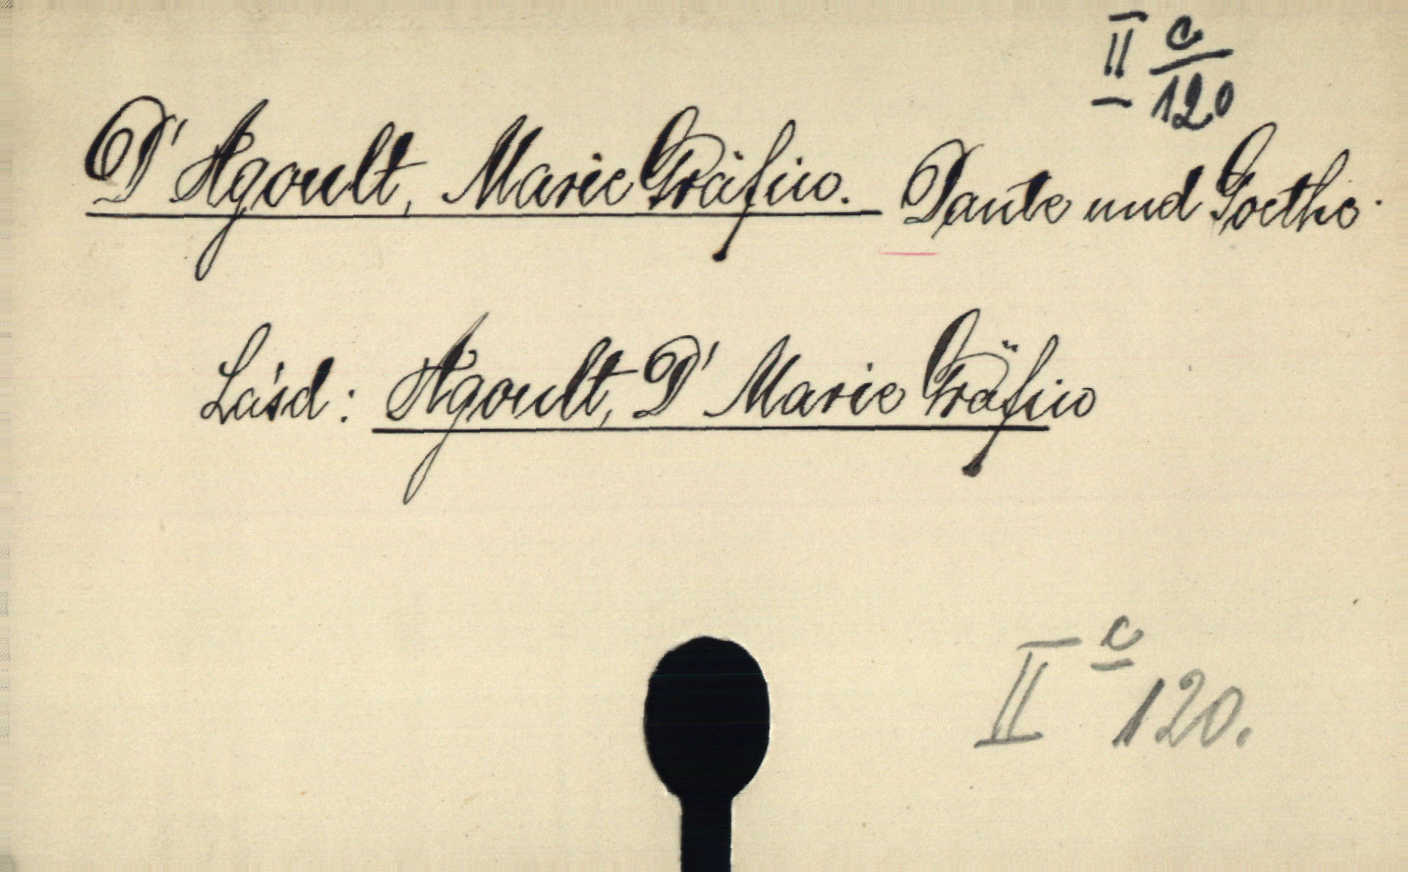 II c/120
D'Agoult, Marie Gräfin. Dante und Goethe.
Lásd: Agoult, D' Marie Gräfin
II c 120.